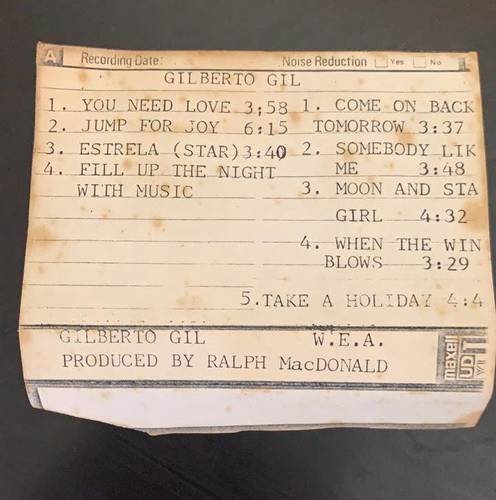 A Recording Date: Noise Reduction Yes No
GILBERTO GIL
1. YOU NEED LOVE 3;58
2. JUMP FOR JOY 6:15
3. ESTRELA (STAR) 3:40
4. FILL UP THE NIGHT
WITH MUSIC
1. COME ON BACK
TOMORROW 3:37
2. SOMEBODY LIK
ME 3:48
3. MOON AND STA
GIRL 4:32
4. WHEN THE WIN
BLOWS 3:29
5. TAKE A HOLIDAY 4:4
GILBERTO GIL W.E.A.
PRODUCED BY RALPH MacDONALD
maxell
UD